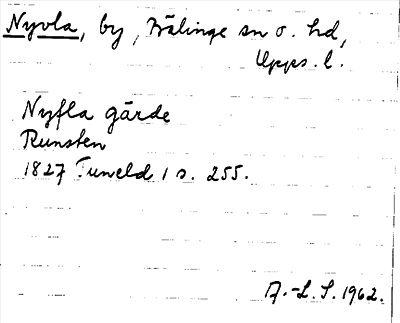 Nyvla, by, Bälinge sn o. hd,
Upps. l.
Nyfla gärde
Runsten
1827 Tuneld 1 s. 255.
A.-L. S. 1962.